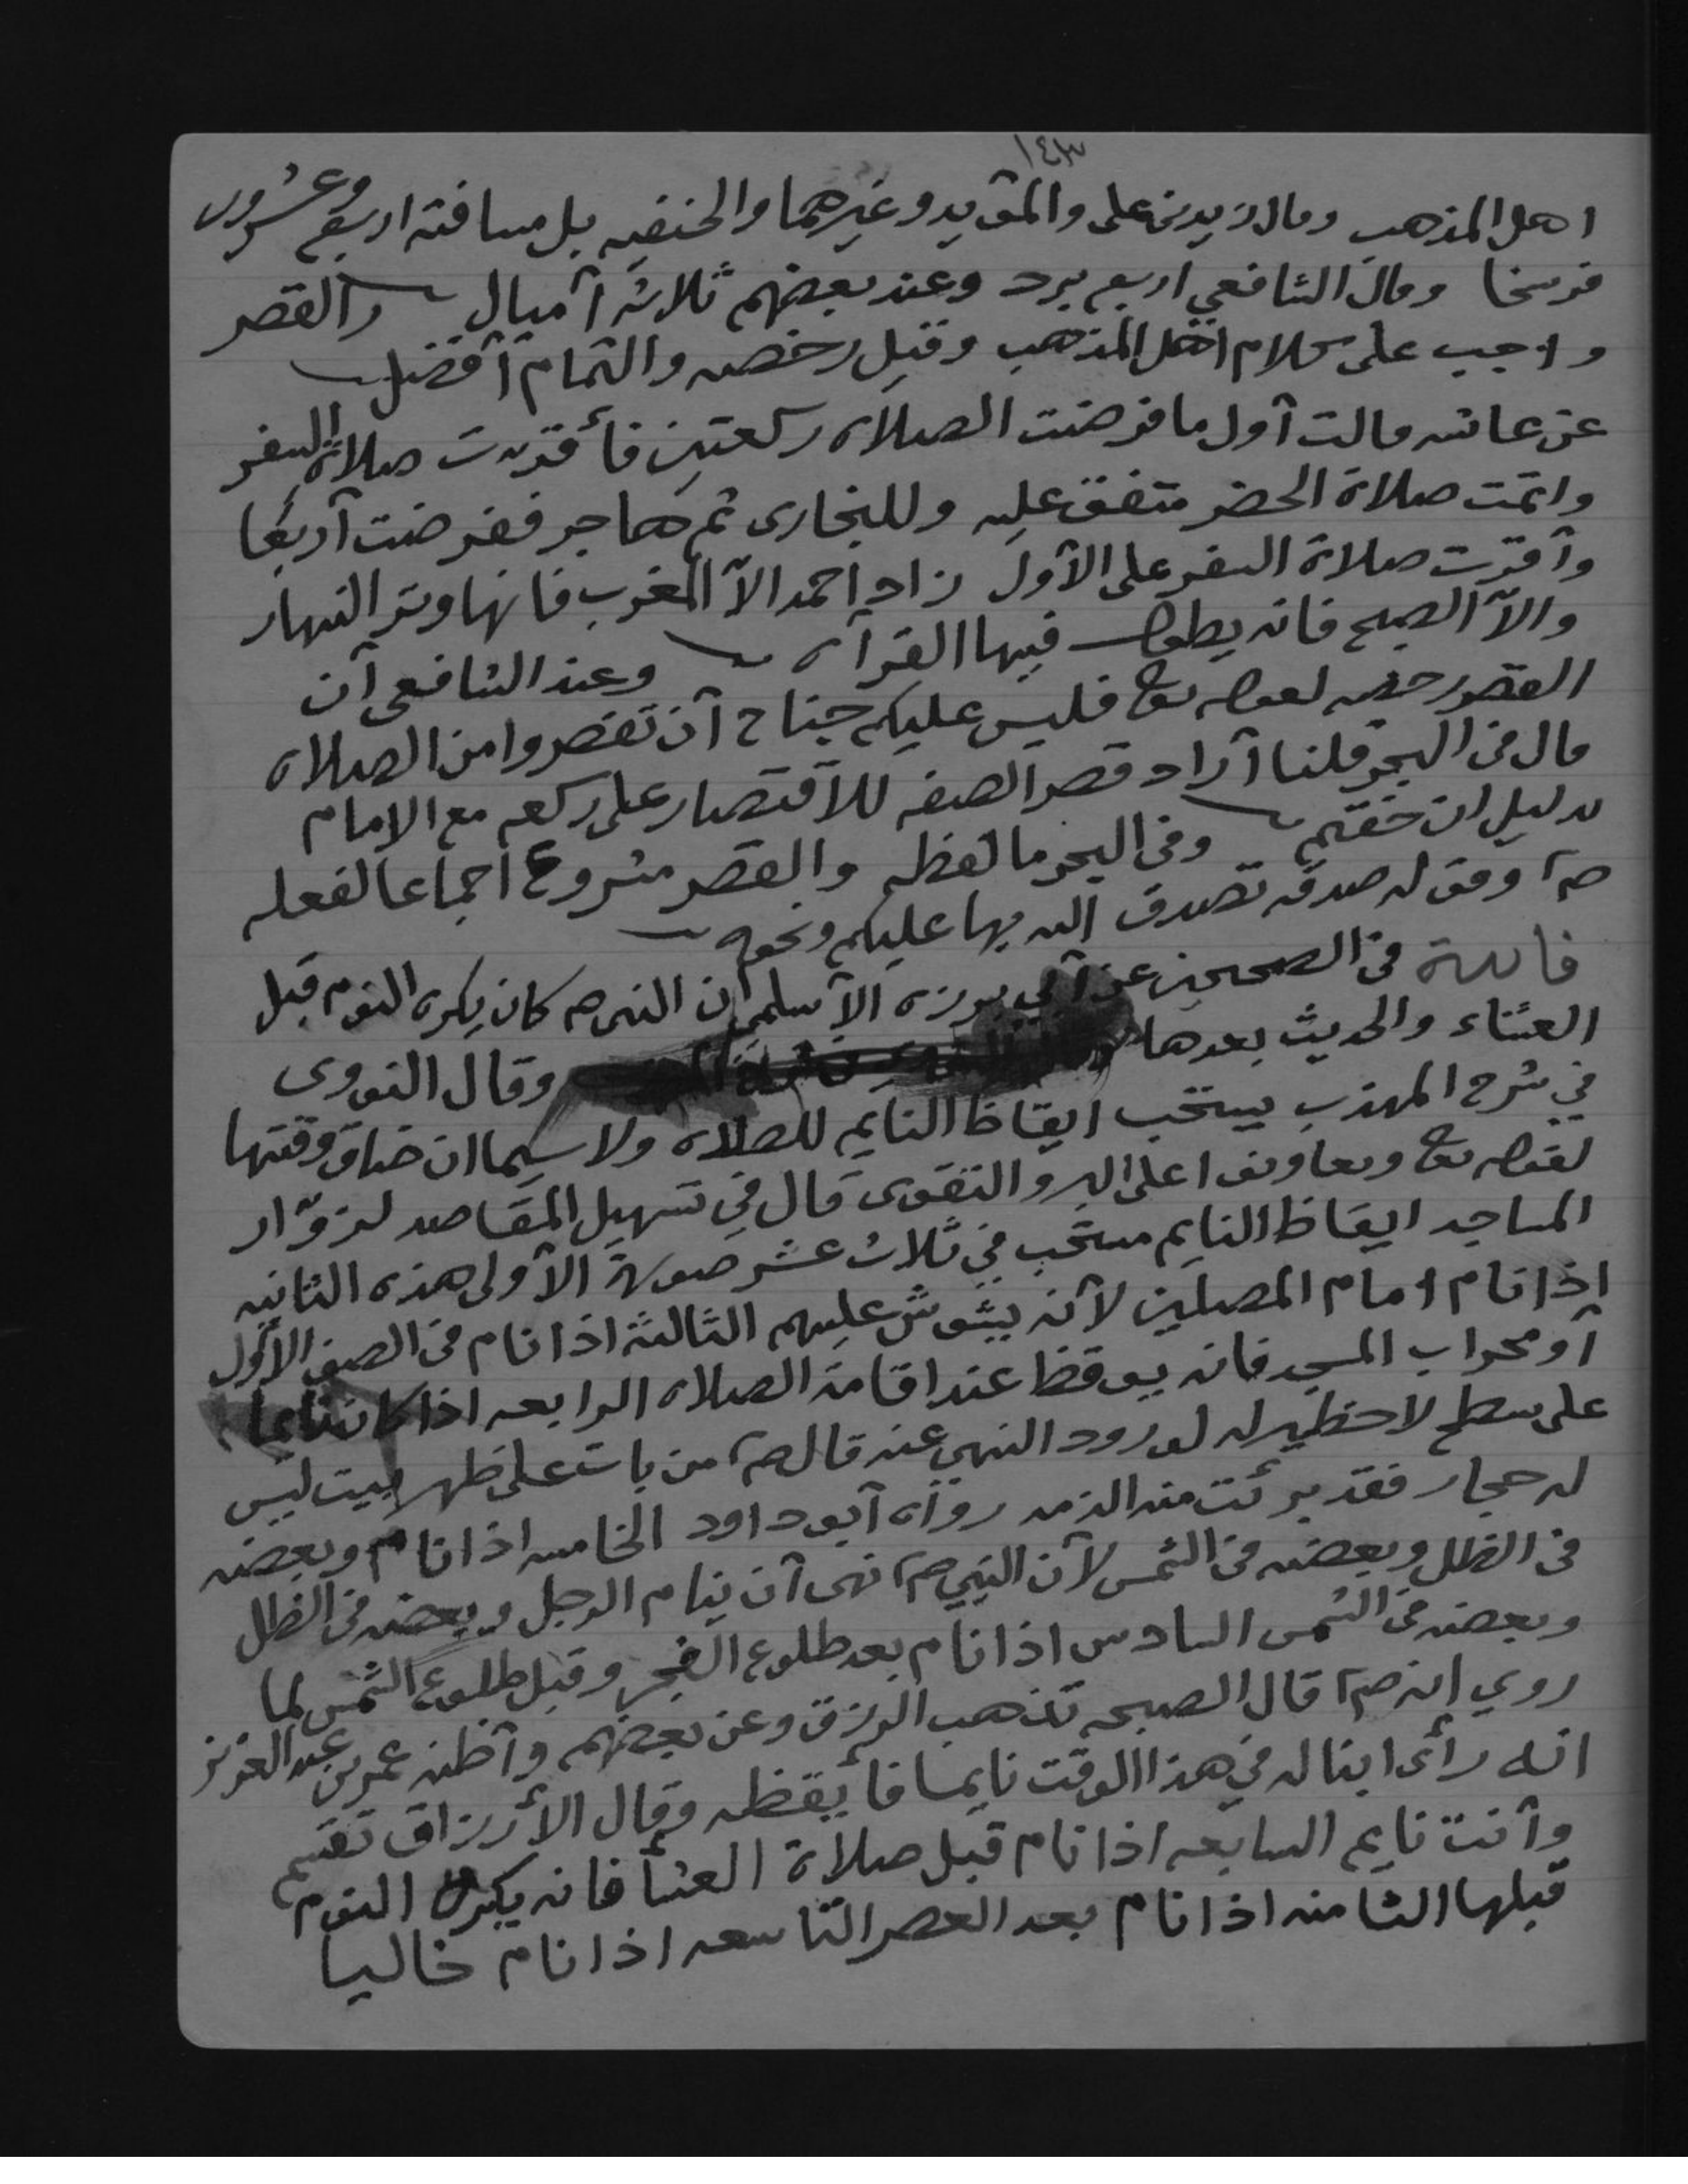 ١٤٣
اهل المذهب وقال زيد بن علي والمؤيد وغيرهما والحنفيه بل مسافة اربع وعشرون
فرسخا وقال الشافعي اربع برد وعند بعضهم ثلاثة أميال والقصر
واجب على كلام اهل المذهب وقيل رخصه والتمام أفضل
عن عائشه قالت أول ما فرضت الصلاه ركعتين فأقرت صلاة السفر
واتمت صلاة الحضر متفق عليه وللبخاري ثم هاجر ففرضت أربعا
وأقرت صلاة السفر على الأول زاد احمد الاّ المغرب فانها وتر النهار
والاّ الصبح فانه يطول فيها القرآن وعند الشافعي أن
القصر رخصه لقوله تع فليس عليكم جناح أن تقصروا من الصلاه
قال في البحر قلنا أراد قصر الصفه للاقتصار على ركعه مع الامام
بدليل ان خفتم وفي البحر ما لفظه والقصر مشروع اجماعا لفعله
صم وقوله صدقه تصدق الله بها عليكم ونحوه
فائدة في الصحيحين عن أبي برزه الأسلمي ان النبي صم كان يكره النوم قبل
العشاء والحديث بعدها وقال النووي
في شرح المهذب يستحب ايقاظ النايم للصلاه ولا سيما ان ضاق وقتها
لقوله تع وتعاونوا على البر والتقوى قال في تسهيل المقاصد لزوّار
المساجد ايقاظ النايم مستحب في ثلاث عشر صورة الأولى هذه الثانيه
إذا نام امام المصلين لأنه يشوش عليهم الثالثة اذا نام في الصف الأول
أو محراب المسجد فانه يوقظ عند اقامة الصلاه الرابعه اذا كان نايما
على سطح لا حظير له لورود النهي عنه قال صم من بات على ظهر بيت ليس
له حجار فقد برئت منه الذمه رواه أبو داود الخامسه اذا نام وبعضه
في الظل وبعضه في الشمس لأن النبي صم نهى أن ينام الرجل وبعضه في الظل
وبعضه في الشمس السادس اذا نام بعد طلوع الفجر وقبل طلوع الشمس لما
روي انه صم قال الصبحه تذهب الرزق وعن بعضهم وأظنه عمر بن عبد العزيز
انه رأى ابنا له في هذا الوقت نايما فأيقظه وقال الأرزاق تقسم
وأنت نايم السابعه اذا نام قبل صلاة العشأ فانه يكره النوم
قبلها الثامنه اذا نام بعد العصر التاسعه اذا نام خاليا